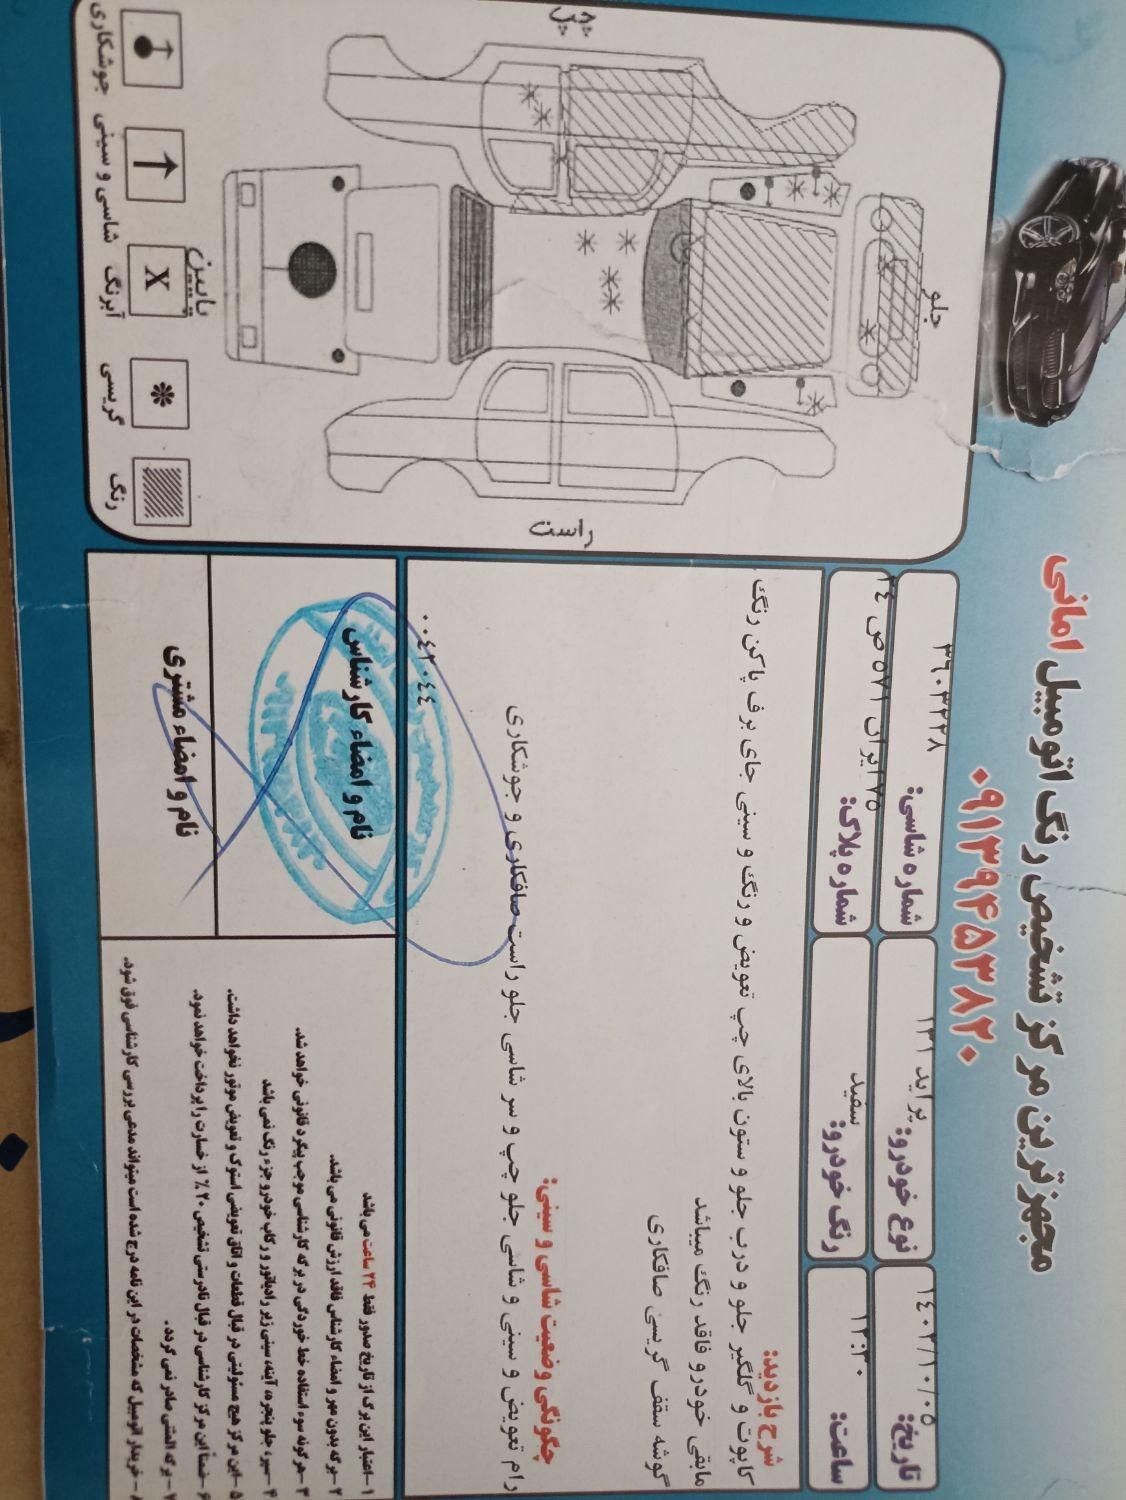 مجهزترین مرکز تشخیص رنگ اتومبیل امانی
۰۹۱۳۹۴۵۳۸۲۰
تاریخ: ۱٤۰۲/۱۰/۰۵
نوع خودرو: پراید ۱۳۱
شماره شاسی: ۳٦۰۳۲۲۸
ساعت: ۱۲:۳۰
رنگ خودرو: سفید
شماره پلاک: ۷۵ ایران ۵۷۱ ص ۲٤
شرح بازدید:
کاپوت و گلگیر جلو و درب جلو و ستون بالای چپ تعویض و رنگ و سینی جای برف پاکن رنگ
مابقی خودرو فاقد رنگ میباشد
گوشه سقف گریسی صافکاری
چگونگی وضعیت شاسی و سینی:
رام تعویض و سینی و شاسی جلو چپ و سر شاسی جلو راست صافکاری و جوشکاری
۰۰٤۲۰٤٤
نام و امضاء کارشناس
نام و امضاء مشتری
۱-اعتبار این برگ از تاریخ صدور فقط ۲۴ ساعت می باشد
۲-برگه بدون مهر و امضاء کارشناس فاقد ارزش قانونی می باشد.
۳-هر گونه سوء استفاده خط خوردگی در برگه کارشناسی موجب پیگرد قانونی خواهد شد.
۴-سپر، جلو پنجره، آینه، سینی زیر رادیاتور و رکاب خودرو جزء رنگ نمی باشد
۵-این مرکز هیچ مسئولیتی در قبال قطعات و اتاق تعویضی استوک و تعویض موتور نخواهد داشت.
۶-ضمناً این مرکز کارشناسی در قبال نادرستی تشخیص ۲۰٪ از خسارت را پرداخت خواهد نمود.
۷-برگه المثنی صادر نمی گردد.
۸-خریدار اتومبیل که مشخصات در این نامه درج شده است میتواند مدعی بررسی کارشناسی فوق شود.
جلو
چپ
راست
پایین
جوشکاری
شاسی و سینی
X
آبرنگ
گریسی
رنگ